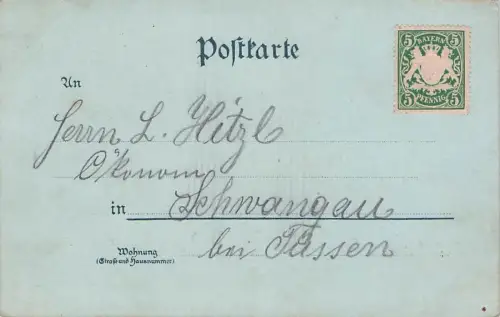 Postkarte
5 BAYERN 5
5 PFENNIG 5
An
Herrn L. Hitzl
Ökonom
in Schwangau
bei Füssen
Wohnung
(Straße und Hausnummer)